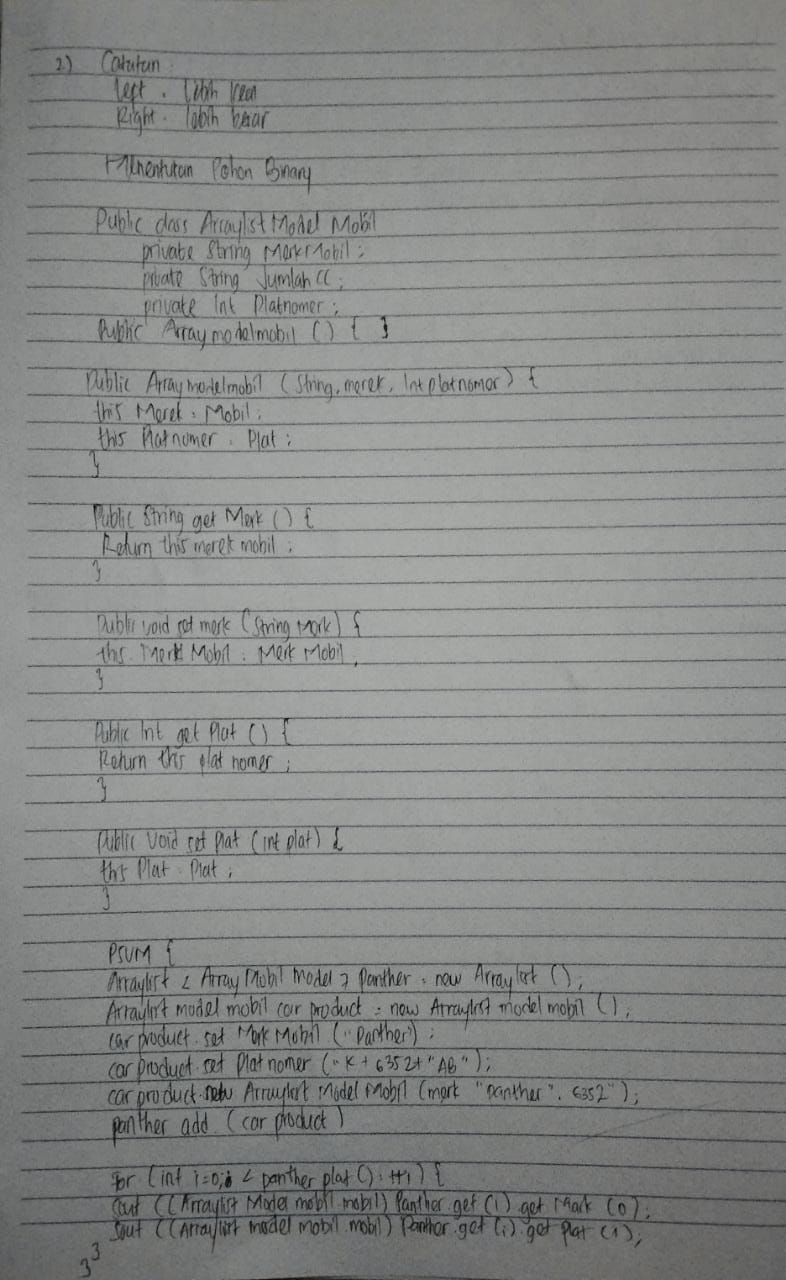 2) Catatan :
left = lebih kecil
Right = lebih besar
Menentukan Pohon Binary
Public class Arraylist Model Mobil
private String Merk Mobil ;
private String Jumlah CC ;
private Int Platnomer ;
Public Array modelmobil () { }
Public Array modelmobil (String, merek, Int platnomor) {
this Merek = Mobil ;
this Platnomer = Plat ;
}
Public String get Merk () {
Return this merek mobil ;
}
Public void set merk (String Merk) {
this. Merk Mobil = Merk Mobil ,
}
Public Int get Plat () {
Return this plat nomer ;
}
Public Void set plat (int plat) {
this Plat = Plat ;
}
PSVM {
Arraylist < Array Mobil Model > Panther = new Array list () ;
Arraylist model mobil car product = new Arraylist model mobil () ;
car product. set Merk Mobil ("Panther") ;
car product. set Plat nomer ("K + 6352 + "AB") ;
car product. new Arraylist Model Mobil (merk "panther". 6352") ;
panther add (car product)
for (int i=0; i < panther plat () ; ++i) {
Sout ((Arraylist Model mobil mobil) Panther. get (i). get Mark (0) ;
Sout ((Arraylist model mobil mobil) Panther. get (i). get plat (1) ;
} }